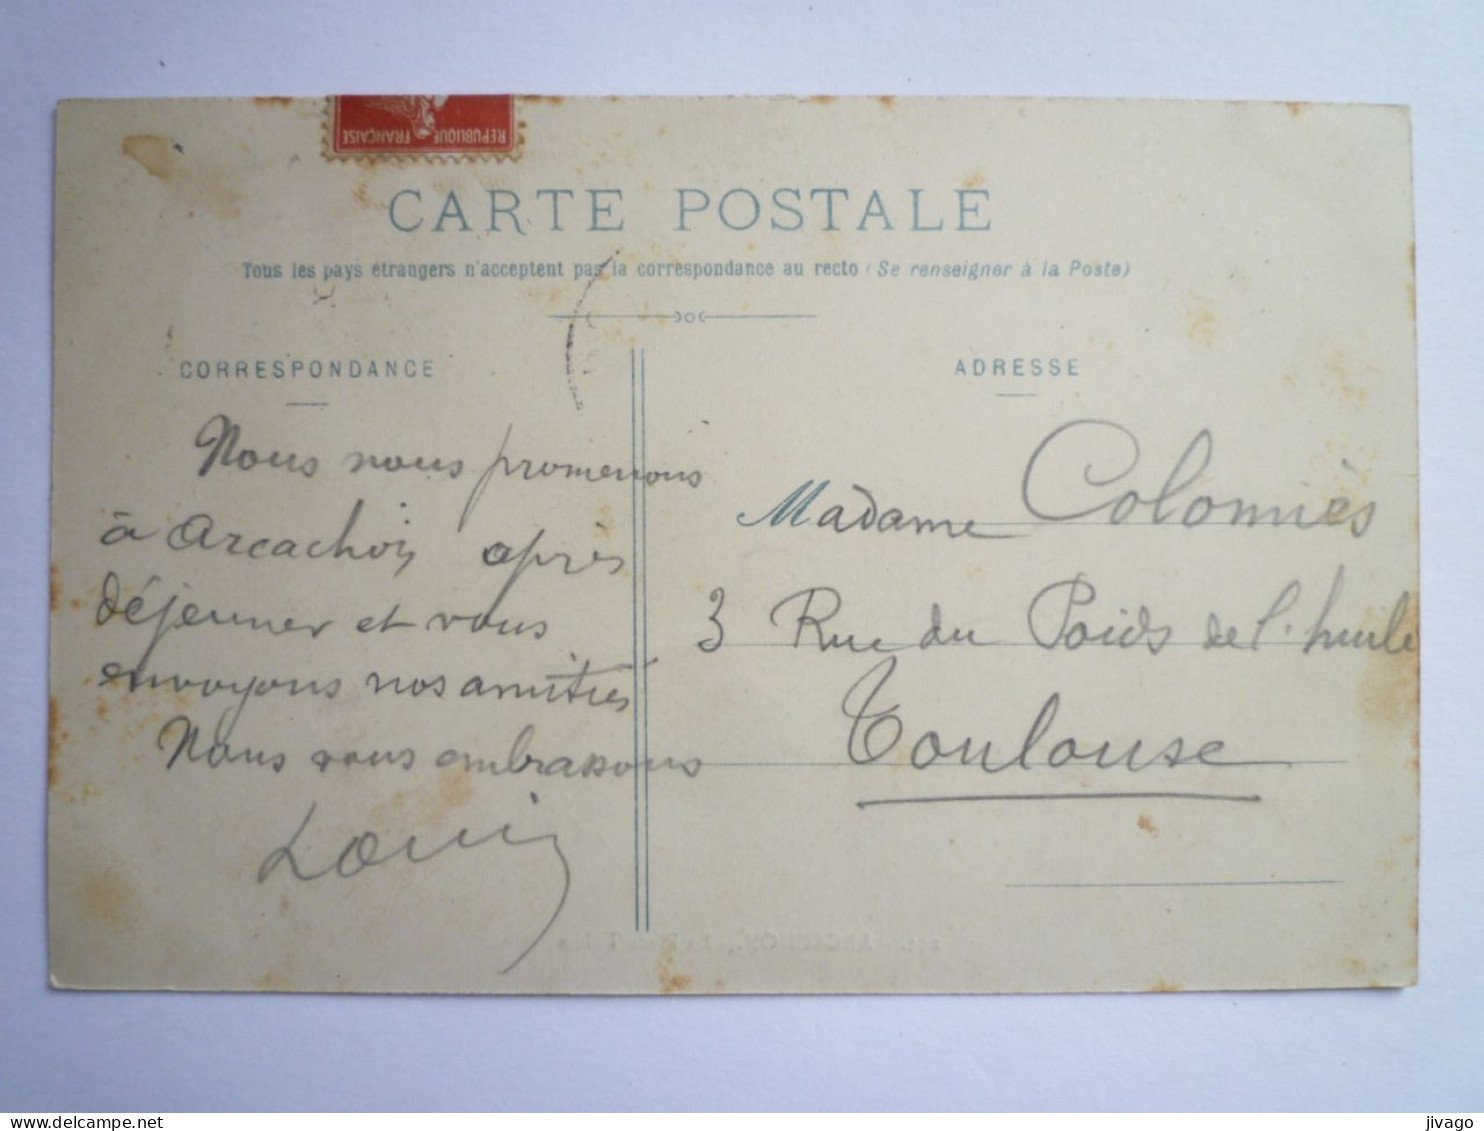 RÉPUBLIQUE FRANÇAISE
CARTE POSTALE
Tous les pays étrangers n'acceptent pas la correspondance au recto (Se renseigner à la Poste)
CORRESPONDANCE
Nous nous promenons
à Arcachon après
déjeuner et vous
envoyons nos amitiés
Nous vous embrassons
Louis
ADRESSE
Madame Colomiès
3 Rue du Poids de l'huile
Toulouse
ARCACHON
jivago
delcampe.net